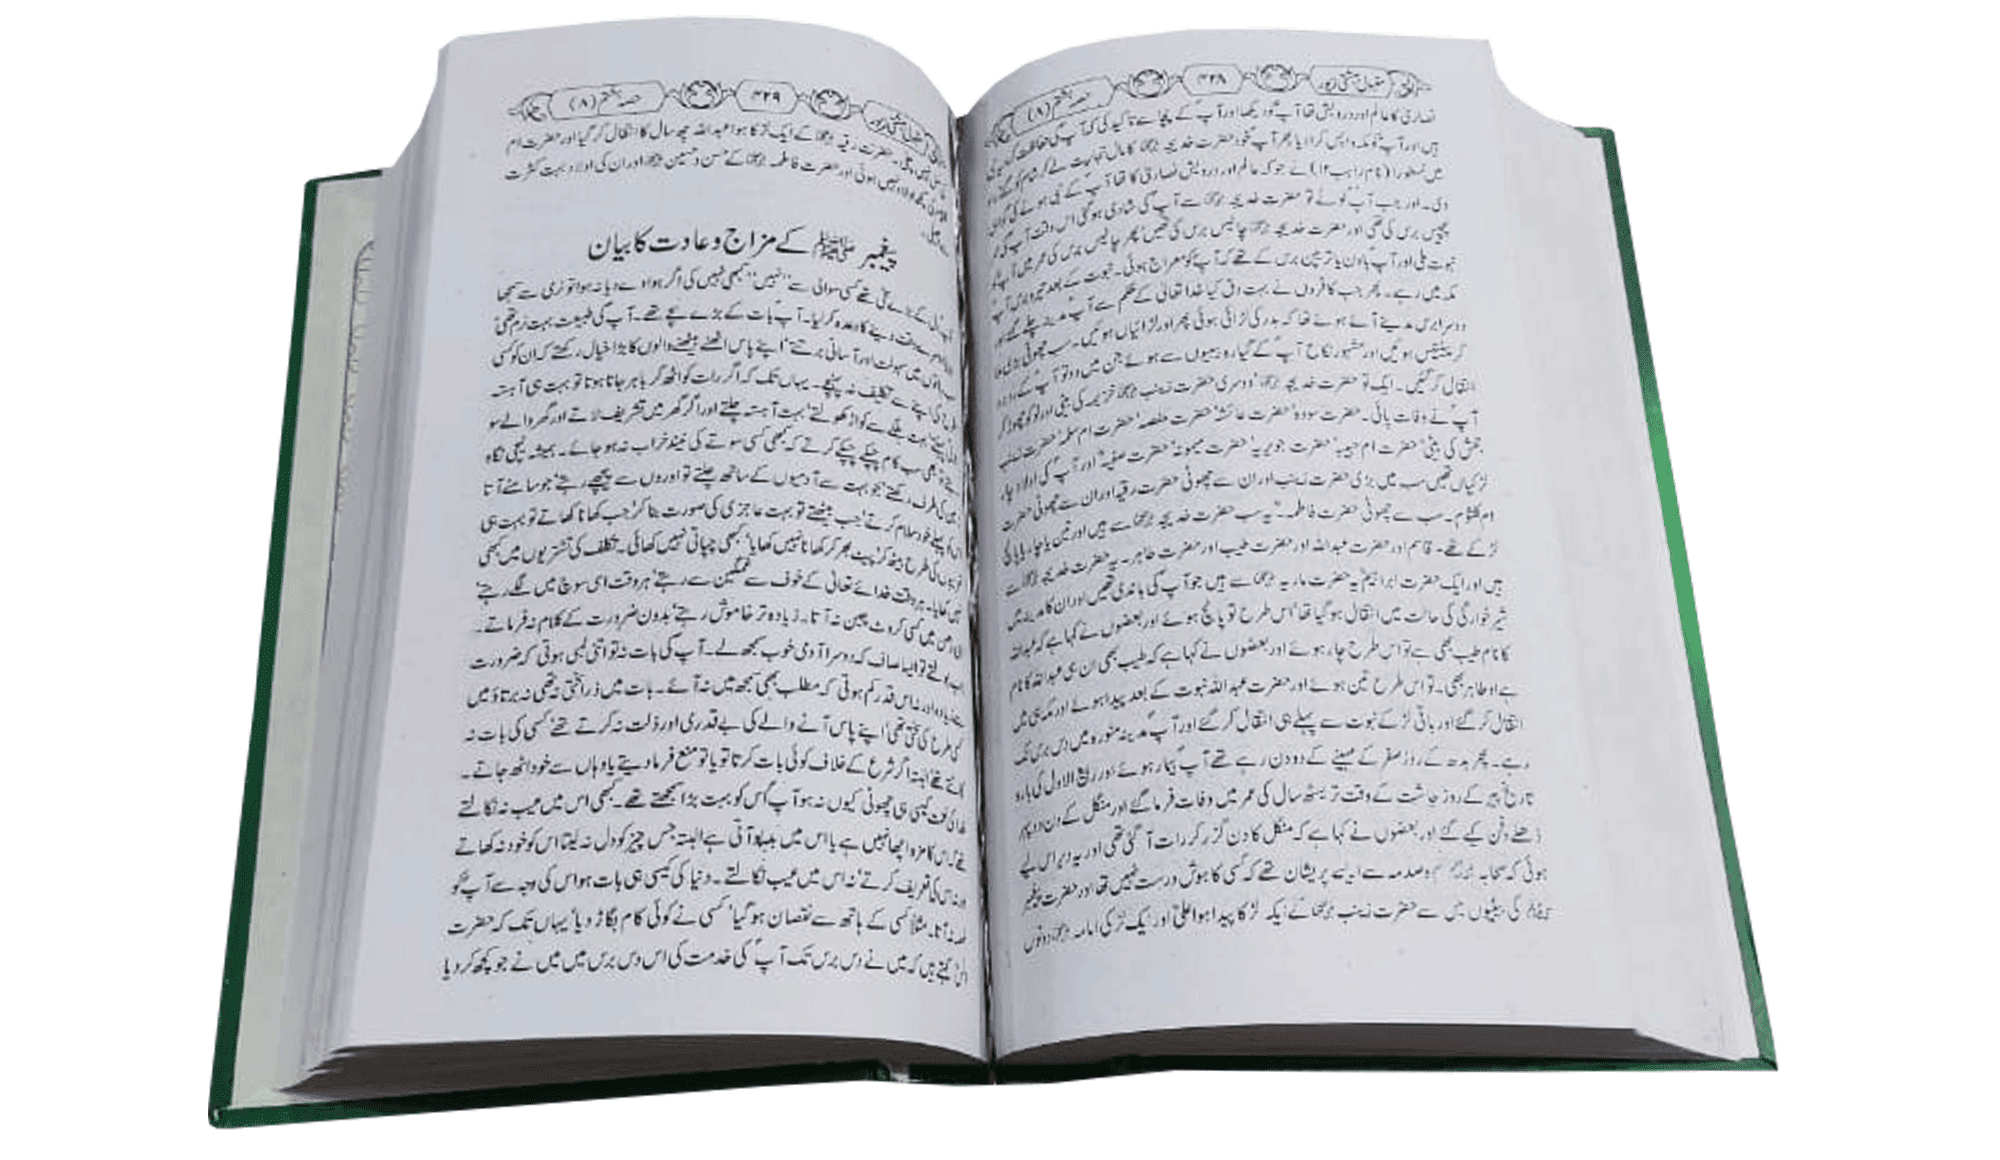 حصہ ہشتم (۸)
۳۲۸
نصاریٰ کا عالم اور درویش تھا آپ کو دیکھا اور آپ کے چچا سے تاکید کی کہ آپ کی حفاظت
ہیں اور آپ کو مکہ واپس کرا دیا پھر آپ خود حضرت خدیجہ کا مال تجارت لے کر شام کو
میں نسطورا (نام راہب ۱۲) نے جو کہ عالم اور درویش نصاریٰ کا تھا آپ کے نبی ہونے کی گواہی
دی۔ اور جب آپ لوٹے تو حضرت خدیجہ سے آپ کی شادی ہو گئی اس وقت آپ کی عمر
پچیس برس کی تھی اور حضرت خدیجہ چالیس برس کی تھیں پھر چالیس برس کی عمر میں آپ کو
نبوت ملی اور آپ باون یا ترپن برس کے تھے کہ آپ کو معراج ہوئی۔ نبوت کے بعد تیرہ برس آپ
مکہ میں رہے۔ پھر جب کافروں نے بہت دق کیا خدا تعالیٰ کے حکم سے آپ مدینہ چلے گئے اور
دوسرا برس مدینے آئے ہوئے تھا کہ بدر کی لڑائی ہوئی پھر اور لڑائیاں ہوئیں۔ سب چھوٹی بڑی
ہوئیں اور مشہور نکاح آپ کے گیارہ بیبیوں سے ہوئے جن میں دو تو آپ کے
انتقال کر گئیں۔ ایک تو حضرت خدیجہ دوسری حضرت زینب خزیمہ کی بیٹی اور نو کو چھوڑ کر
آپ نے وفات پائی۔ حضرت سودہ حضرت عائشہ حضرت حفصہ حضرت ام سلمہ حضرت زینب
جحش کی بیٹی حضرت ام حبیبہ حضرت جویریہ حضرت میمونہ حضرت صفیہ اور آپ کی اولاد چار
لڑکیاں تھیں سب میں بڑی حضرت زینب اور ان سے چھوٹی حضرت رقیہ اور ان سے چھوٹی حضرت
ام کلثوم۔ سب سے چھوٹی حضرت فاطمہ۔ یہ سب حضرت خدیجہ سے ہیں اور تین یا چار یا پانچ
لڑکے تھے۔ قاسم اور حضرت عبداللہ اور حضرت طیب اور حضرت طاہر۔ یہ حضرت خدیجہ سے
ہیں اور ایک حضرت ابراہیم یہ حضرت ماریہ سے ہیں جو آپ کی باندی تھیں اور ان کا مدینہ میں
شیر خوارگی کی حالت میں انتقال ہو گیا تھا اس طرح تو پانچ ہوئے اور بعضوں نے کہا ہے کہ عبداللہ
کا نام طیب بھی ہے تو اس طرح چار ہوئے اور بعضوں نے کہا ہے کہ طیب بھی ان ہی عبداللہ کا نام
ہے اور طاہر بھی۔ تو اس طرح تین ہوئے اور حضرت عبداللہ نبوت کے بعد پیدا ہوئے اور مکہ ہی میں
انتقال کر گئے اور باقی لڑکے نبوت سے پہلے ہی انتقال کر گئے اور آپ مدینہ منورہ میں دس برس تک
رہے۔ پھر بدھ کے روز صفر کے مہینے کے دو دن رہے تھے آپ بیمار ہوئے اور ربیع الاول کی بارہ
تاریخ پیر کے روز چاشت کے وقت تریسٹھ سال کی عمر میں وفات فرما گئے اور منگل کے دن دوپہر
ڈھلے دفن کیے گئے اور بعضوں نے کہا ہے کہ منگل کا دن گزر کر رات آ گئی تھی اور یہ دیر اس لیے
ہوئی کہ صحابہ صدمہ سے ایسے پریشان تھے کہ کسی کا ہوش درست نہیں تھا اور حضرت پیغمبر
کی بیٹیوں میں سے حضرت زینب کے ایک لڑکا پیدا ہوا علی اور ایک لڑکی امامہ دونوں
حصہ ہشتم (۸)
۳۲۹
حضرت رقیہ کے ایک لڑکا ہوا عبداللہ چھ سال کا انتقال کر گیا اور حضرت ام
نہیں ہوئی اور حضرت فاطمہ کے حسن و حسین اور ان کی اولاد بہت کثرت
پیغمبر ﷺ کے مزاج و عادت کا بیان
تھے کسی سوالی سے ''نہیں'' کبھی نہیں کی اگر ہوا دے دیا نہ ہوا تو نرمی سے سمجھا
وقت دینے کا وعدہ کر لیا۔ آپ بات کے بڑے سچے تھے۔ آپ کی طبیعت بہت نرم تھی
باتوں میں سہولت اور آسانی برتتے اپنے پاس اٹھنے بیٹھنے والوں کا بڑا خیال رکھتے کہ ان کو کسی
طرح کی اپنے سے تکلیف نہ پہنچے۔ یہاں تک کہ اگر رات کو اٹھ کر باہر جانا ہوتا تو بہت ہی آہستہ
بہت ہلکے سے کواڑ کھولتے بہت آہستہ چلتے اور اگر گھر میں تشریف لاتے اور گھر والے سو
تو بھی سب کام چپکے چپکے کرتے کہ کبھی کسی سوتے کی نیند خراب نہ ہو جائے۔ ہمیشہ نیچی نگاہ
کی طرف رکھتے جو بہت سے آدمیوں کے ساتھ چلتے تو اوروں سے پیچھے رہتے جو سامنے آتا
پہلے خود سلام کرتے جب بیٹھتے تو بہت عاجزی کی صورت بنا کر جب کھانا کھاتے تو بہت ہی
کی طرح بیٹھ کر پیٹ بھر کر کھانا نہیں کھایا کبھی چپاتی نہیں کھائی۔ تکلف کی تشتریوں میں کبھی
نہیں کھایا۔ ہر وقت خدائے تعالیٰ کے خوف سے غمگین سے رہتے ہر وقت اسی سوچ میں لگے رہتے
میں کسی کروٹ چین نہ آتا۔ زیادہ تر خاموش رہتے بدون ضرورت کے کلام نہ فرماتے۔
بولتے تو ایسا صاف کہ دوسرا آدمی خوب سمجھ لے۔ آپ کی بات نہ تو اتنی لمبی ہوتی کہ ضرورت
سے زیادہ اور نہ اس قدر کم ہوتی کہ مطلب بھی سمجھ میں نہ آئے۔ بات میں ذرا سختی نہ تھی نہ برتاؤ میں
کسی طرح کی سختی تھی اپنے پاس آنے والے کی بے قدری اور ذلت نہ کرتے تھے کسی کی بات نہ
کاٹتے تھے البتہ اگر شرع کے خلاف کوئی بات کرتا تو یا تو منع فرما دیتے یا وہاں سے خود اٹھ جاتے۔
خدا کی نعمت کیسی ہی چھوٹی کیوں نہ ہو آپ اس کو بہت بڑا سمجھتے تھے۔ کبھی اس میں عیب نہ نکالتے
تھے کہ اس کا مزہ اچھا نہیں ہے یا اس میں بدبو آتی ہے البتہ جس چیز کو دل نہ لیتا اس کو خود نہ کھاتے
اور نہ اس کی تعریف کرتے نہ اس میں عیب نکالتے۔ دنیا کی کیسی ہی بات ہو اس کی وجہ سے آپ کو
غصہ نہ آتا۔ مثلاً کسی کے ہاتھ سے نقصان ہو گیا کسی نے کوئی کام بگاڑ دیا یہاں تک کہ حضرت
کہتے ہیں کہ میں نے دس برس تک آپ کی خدمت کی اس دس برس میں میں نے جو کچھ کر دیا